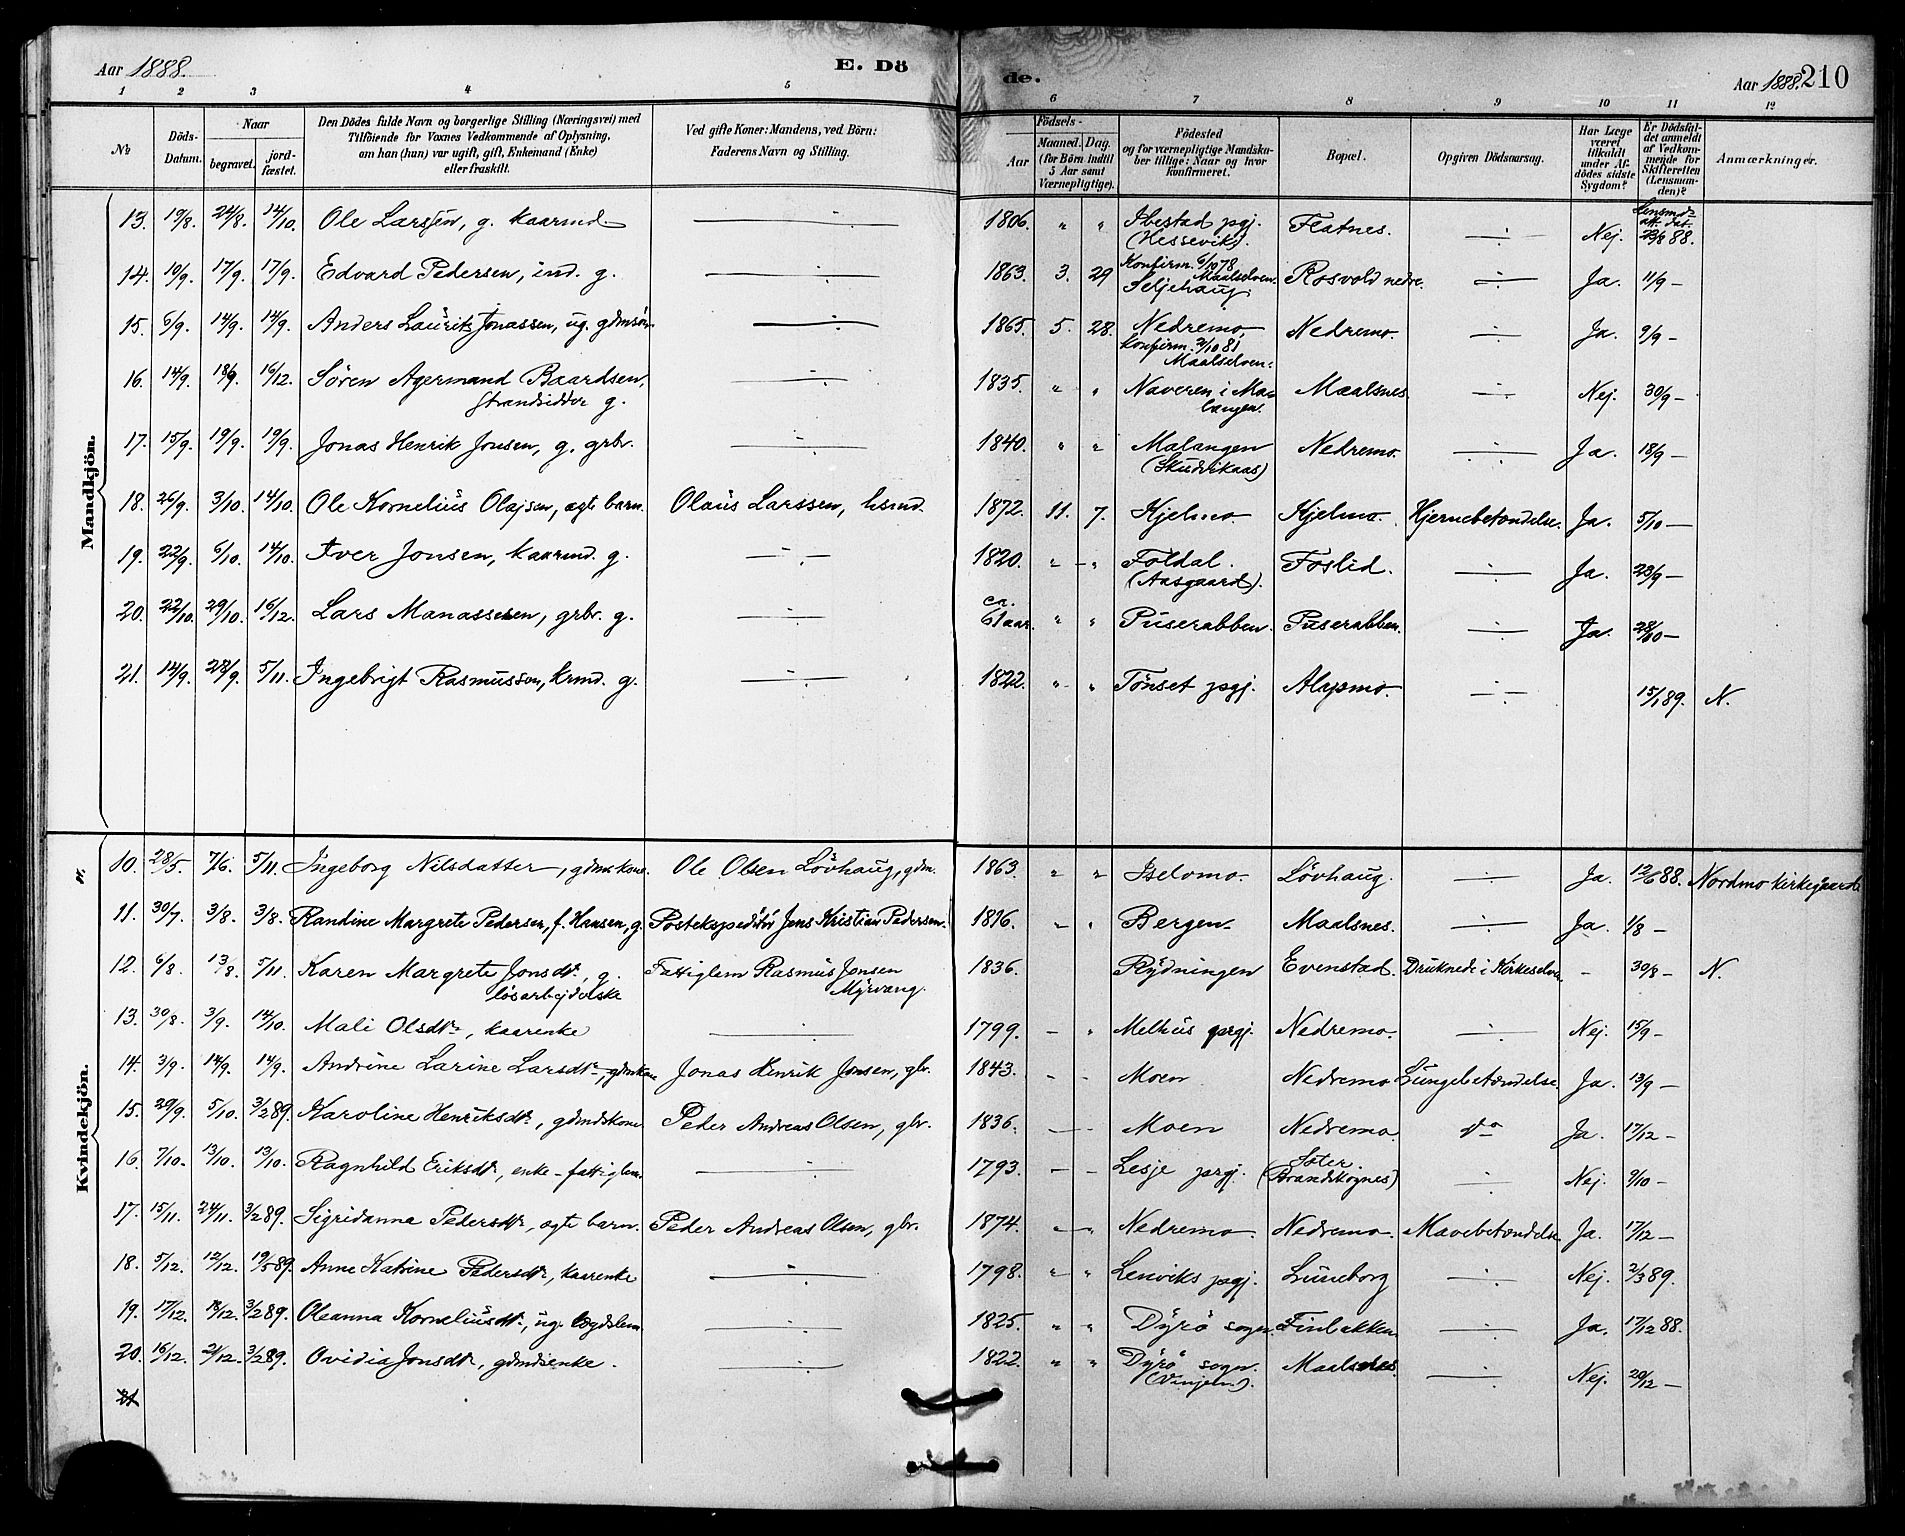 Aar 1888. E. Dö de. Aar 1888. 210
1 2 3 4 5 6 7 8 9 10 11 12
№ Döds-Datum. Naar begravet. jordfæstet. Den Dödes fulde Navn og borgerlige Stilling (Næringsvei) med Tilföiende for Voxnes Vedkommende af Oplysning, om han (hun) var ugift, gift, Enkemand (Enke) eller fraskilt. Ved gifte Koner: Mandens, ved Börn: Faderens Navn og Stilling. Födsels- Aar Maaned. Dag. (for Börn indtil 5 Aar samt Værnepligtige). Födested og for værnepligtige Mandskaber tillige: Naar og hvor konfirmeret. Bopæl. Opgiven Dödsaarsag. Har Læge været tilkaldt under Afdödes sidste Sygdom? Er Dödsfaldet anmeldt af Vedkommende for Skifteretten (Lensmanden)? Anmærkninger.
Mandkjön.
13. 19/8. 24/8. 14/10. Ole Larssen, g. kaarmd. —:— 1806. " " Ibestad pgj. (Hessevik). Flatnes. —:— Nej. Lensmds att. dat. 23/8 88.
14. 10/9. 17/9. 17/9. Edvard Pedersen, ind. g. —:— 1863. 3. 29 Konfirm. 6/10 78 Maalselven. Seljehaug. Rosvold nedre. —:— Ja. 11/9 —
15. 6/9. 14/9. 14/9. Anders Laurits Jonassen, ug. gdmsön. —:— 1865. 5. 28. Nedremo. Konfirm. 2/10 81 Maalselven. Nedremo. —:— Ja. 9/9 —
16. 14/9. 18/9. 16/12. Sören Agermand Baardsen, Strandsidder g. —:— 1835. " " Naveren i Malangen. Maalsnes. —:— Nej. 30/9 —
17. 15/9. 19/9. 19/9. Jonas Henrik Jonsen, g. grbr. —:— 1840. " " Malangen (Skudvikaas) Nedremo. —:— Ja. 18/9 —
18. 26/9. 3/10. 14/10. Ole Kornelius Olajsen, ægte barn. Olaus Larssen, husmd. 1872. 11. 7. Kjelmo. Kjelmo. Hjernebetændelse. Ja. 5/10 —
19. 22/9. 6/10. 14/10. Iver Jonsen, kaarmd. g. —:— 1820. " " Foldal. (Aasgaard). Foslid. —:— Ja. 23/9 —
20. 22/10. 29/10. 16/12. Lars Manassesen, grbr. g. —:— ca. 61 aar. " " Puserabben. Puserabben. —:— Ja. 28/10 —
21. 14/9. 28/9. 5/11. Ingebrigt Rasmussen, krmd. g. —:— 1822. " " Tönset pgj. Alapmo. —:— 15/1 89. N.
Kvindekjön.
10. 28/5. 7/6. 5/11. Ingeborg Nilsdatter, gdmskone. Ole Olsen Lövhaug, gdm. 1863. " " Iselvmo. Lövhaug. —:— Ja. 12/6 88. Nordmo kirkegaard
11. 30/7. 3/8. 3/8. Randine Margrete Pedersen, f. Hansen, g. Postekspeditör Jens Kristian Pedersen. 1816. " " Bergen. Maalsnes. —:— Ja. 1/8 —
12. 6/8. 13/8. 5/11. Karen Margrete Jonsdtr., g. lösarbejderske Fattiglem Rasmus Jonsen Myrvang. 1836. Rydningen Evenstad. Druknede i Kirkeselven — 30/8 — N.
13. 30/8. 3/9. 14/10. Mali Olsdtr, kaarenke —:— 1799. — " Melhus prgj. Nedremo. —:— Nej. 15/9 —
14. 3/9. 14/9. 14/9. Andrine Larine Larsdtr, gdmkone Jonas Henrik Jonsen, gbr. 1843. — — Moen Nedremo Lungebetændelse. Ja. 13/9 —
15. 29/9. 5/10. 3/2 89. Karoline Henriksdtr, gdmdskone Peder Andreas Olsen, gbr. 1836. — — Moen Nedremo. do Ja. 17/12 —
16. 7/10. 13/10. 13/10. Ragnhild Eriksdtr, enke - fattiglem. —:— 1793. — — Lesje prgj. Soter. (Brandskognes) —:— Nej. 9/10 —
17. 15/11. 24/11. 3/2 89. Sigridanna Pedersdtr, ægte barn. Peder Andreas Olsen, gbr. 1874. — " Nedremo. Nedremo. Mavebetændelse Ja. 17/12 —
18. 5/12. 12/12. 19/5 89. Anne Katrine Pedersdtr, kaarenke —:— 1798. " " Lenviks pgj. Luneborg —:— Nej. 2/3 89.
19. 17/12. 18/12. 3/2 89. Oleanna Korneliusdtr, ug. lægdslem —:— 1825. " " Dyrö sogn. Finbakken —:— Ja. 17/12 88.
20. 16/12. 21/12. 3/2 89. Ovidia Jonsdtr, gdmdsenke. —:— 1822. " " Dyrö sogn. (Vinjeln). Maalsnes. —:— Nej. 20/12 —
21